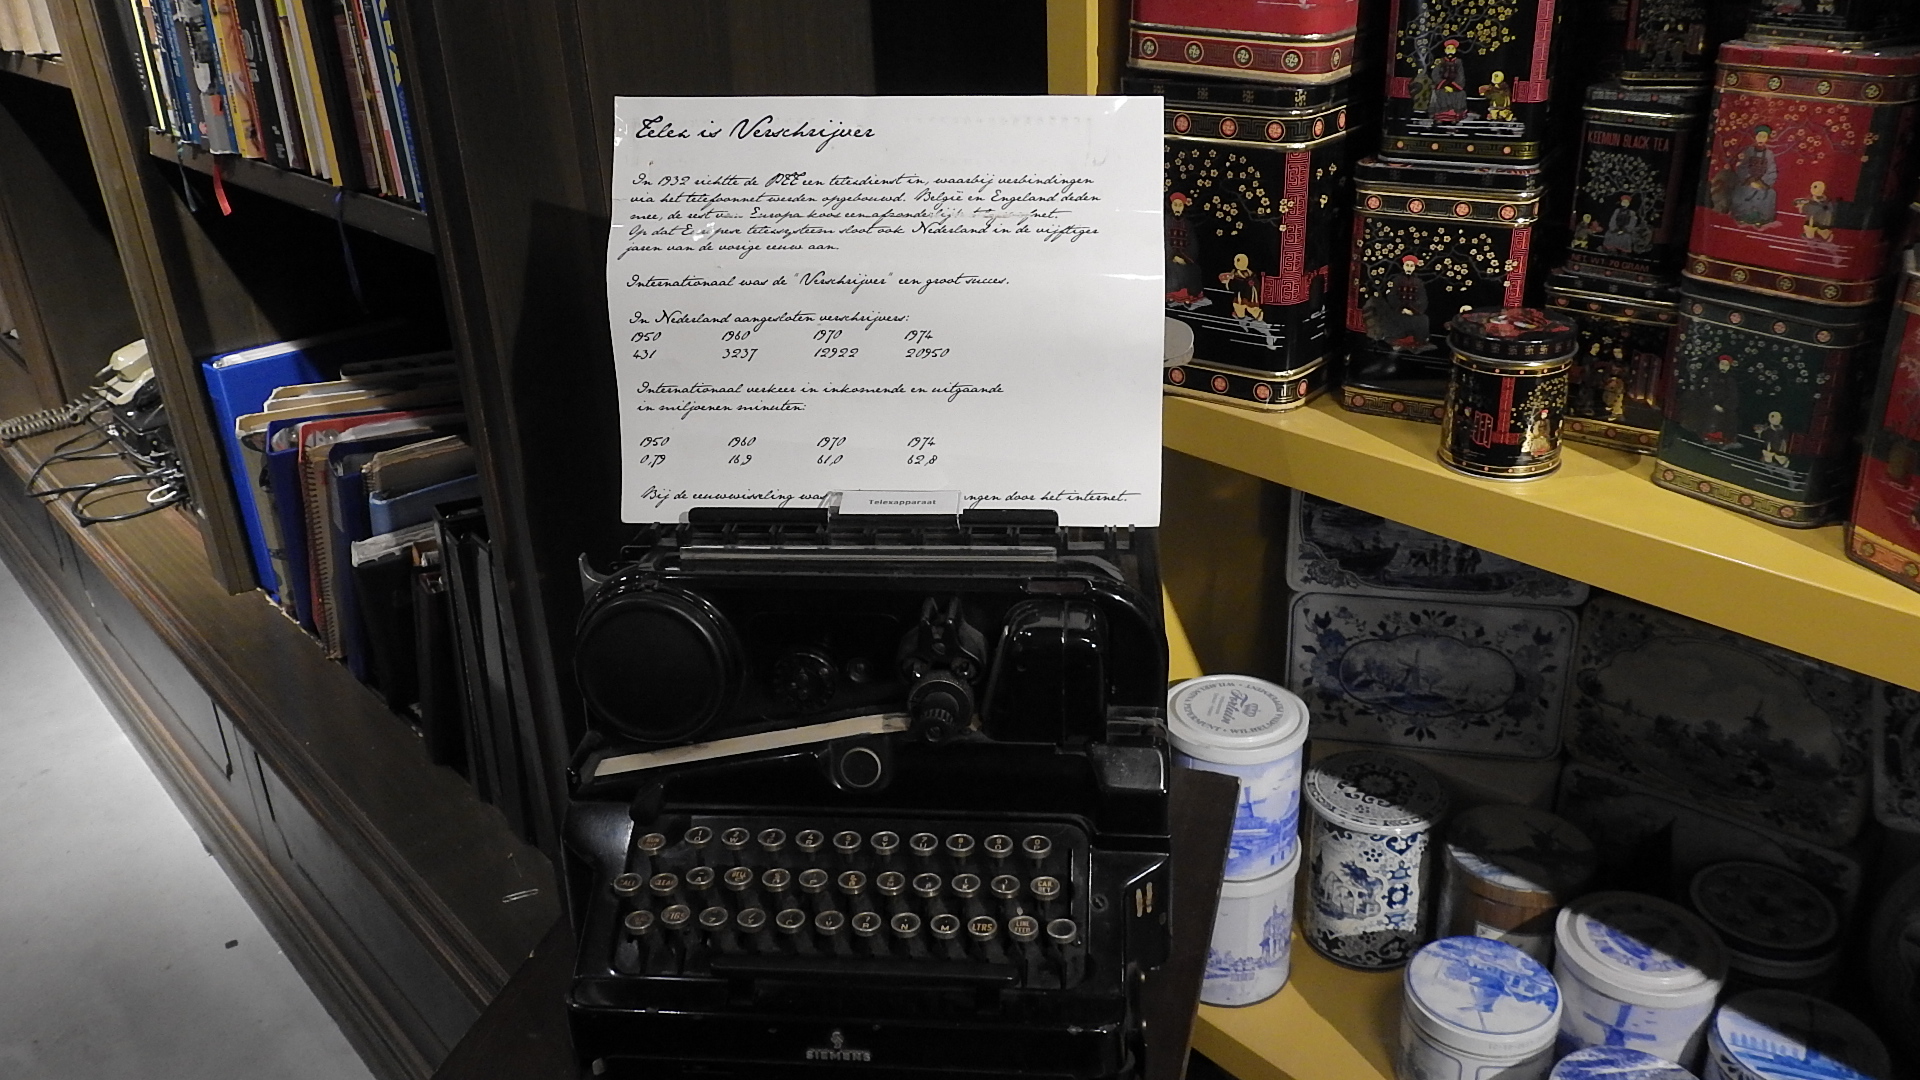 Telex is Verschrijver
In 1932 richtte de PTT een telexdienst in, waarbij verbindingen
via het telefoonnet werden opgebouwd. België en Engeland deden
mee, de rest van Europa koos een afzonderlijk net.
Op dat Europese telexsysteem sloot ook Nederland in de vijftiger
jaren van de vorige eeuw aan.
Internationaal was de "Verschrijver" een groot succes.
In Nederland aangesloten verschrijvers:
1950 1960 1970 1974
431 3237 12922 20950
Internationaal verkeer in inkomende en uitgaande
in miljoenen minuten:
1950 1960 1970 1974
0,79 16,9 61,0 62,8
Bij de eeuwwisseling was ngen door het internet.
Telexapparaat
KEEMUN BLACK TEA
NET WT. 70 GRAM
Fortuin
WILHELMINA PEPERMUNT
CAR RET
LTRS
LINE FEED
SIEMENS